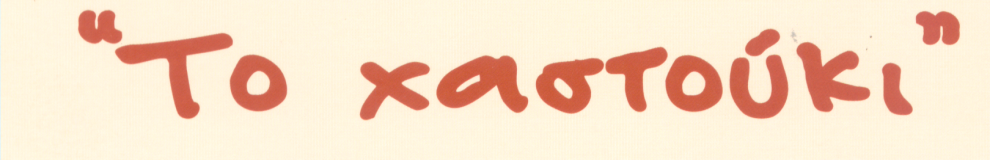 “Το χαστούκι”